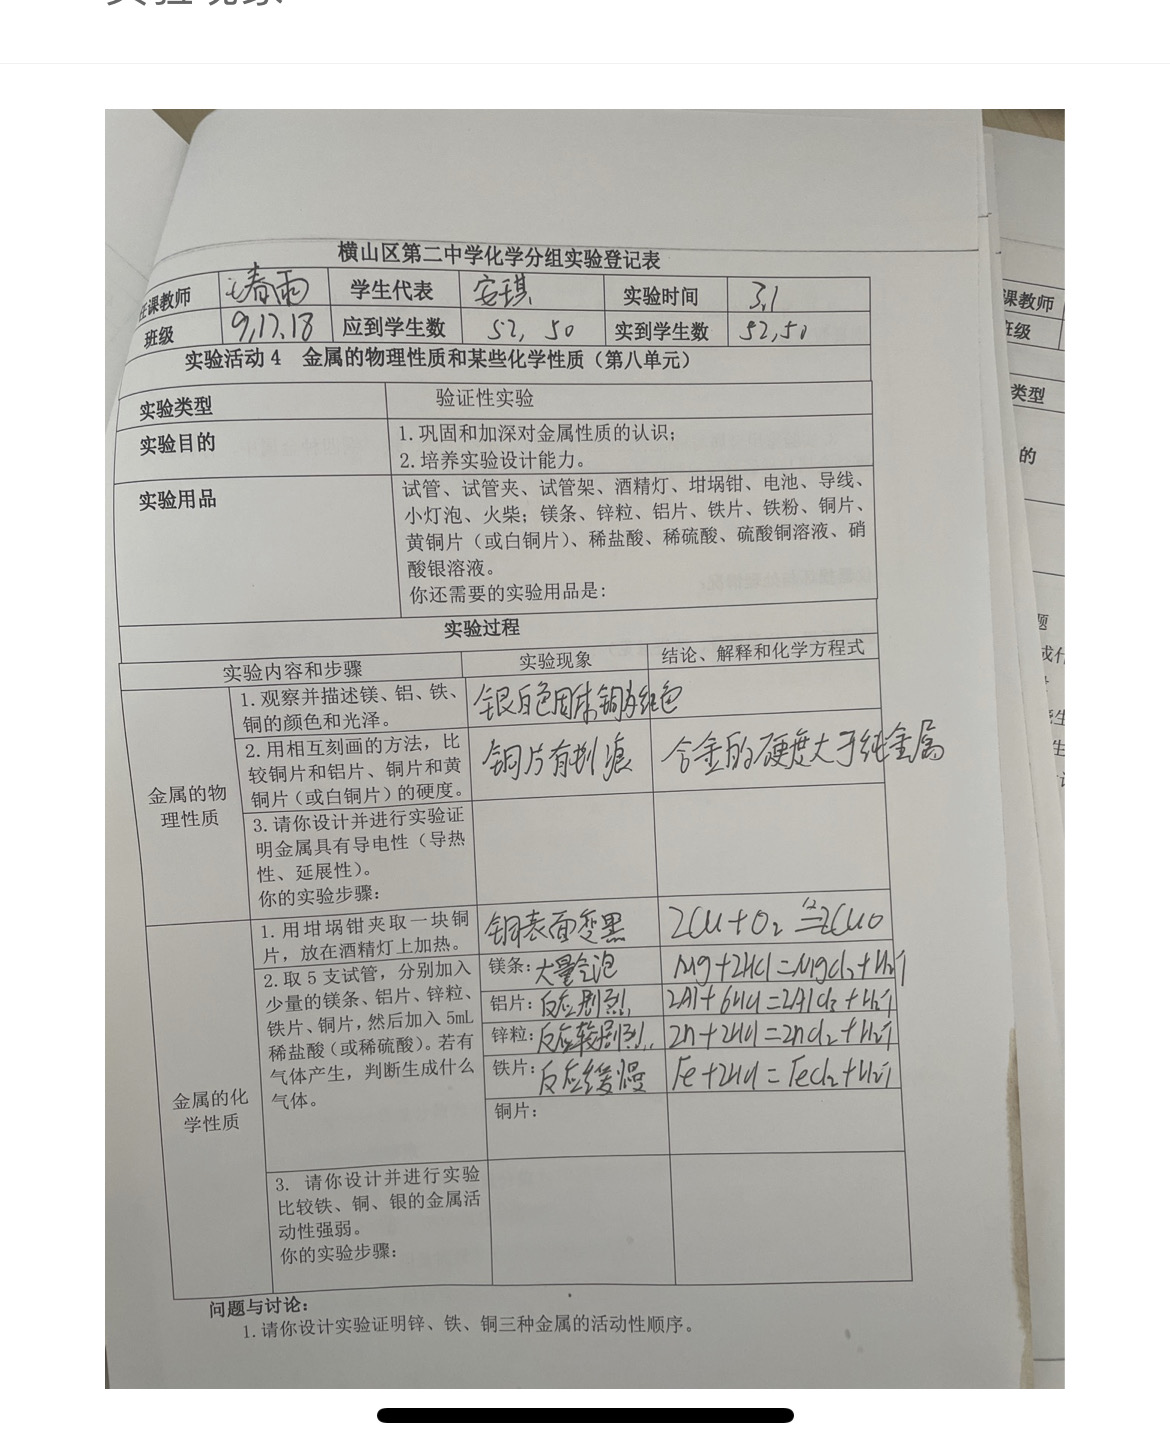 横山区第二中学化学分组实验登记表
任课教师 春雨 学生代表 安琪 实验时间 3.1
班级 9,17,18 应到学生数 52, 50 实到学生数 52,50
实验活动4 金属的物理性质和某些化学性质（第八单元）
实验类型 验证性实验
实验目的 1.巩固和加深对金属性质的认识；
2.培养实验设计能力。
实验用品 试管、试管夹、试管架、酒精灯、坩埚钳、电池、导线、
小灯泡、火柴；镁条、锌粒、铝片、铁片、铁粉、铜片、
黄铜片（或白铜片）、稀盐酸、稀硫酸、硫酸铜溶液、硝
酸银溶液。
你还需要的实验用品是：
实验过程
实验内容和步骤 实验现象 结论、解释和化学方程式
金属的物
理性质
1.观察并描述镁、铝、铁、
铜的颜色和光泽。
银白色固体铜为红色
2.用相互刻画的方法，比
较铜片和铝片、铜片和黄
铜片（或白铜片）的硬度。
铜片有划痕 合金的硬度大于纯金属
3.请你设计并进行实验证
明金属具有导电性（导热
性、延展性）。
你的实验步骤：
金属的化
学性质
1.用坩埚钳夹取一块铜
片，放在酒精灯上加热。
铜表面变黑 2Cu+O₂≜2CuO
2.取5支试管，分别加入
少量的镁条、铝片、锌粒、
铁片、铜片，然后加入5mL
稀盐酸（或稀硫酸）。若有
气体产生，判断生成什么
气体。
镁条：大量气泡 Mg+2HCl=MgCl₂+H₂↑
铝片：反应剧烈. 2Al+6HCl=2AlCl₃+H₂↑
锌粒：反应较剧烈.. Zn+2HCl=ZnCl₂+H₂↑
铁片：反应缓慢 Fe+2HCl=FeCl₂+H₂↑
铜片：
3. 请你设计并进行实验
比较铁、铜、银的金属活
动性强弱。
你的实验步骤：
问题与讨论：
1.请你设计实验证明锌、铁、铜三种金属的活动性顺序。
课教师
班级
类型
的
题